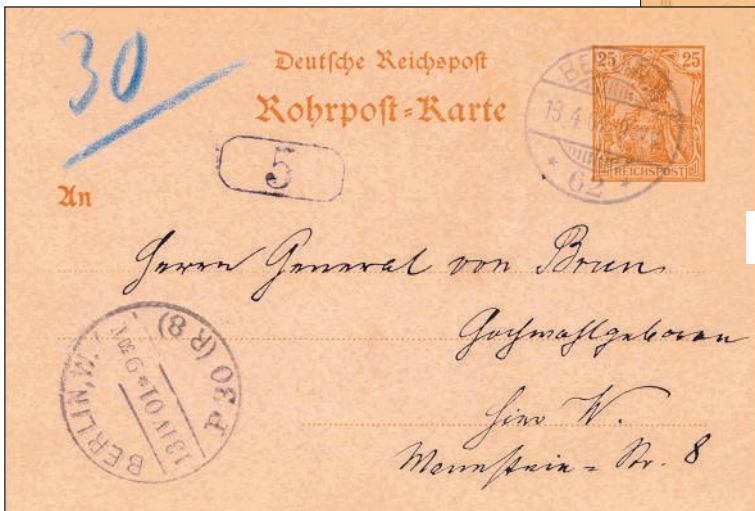 30
Deutsche Reichspost
Rohrpost-Karte
25 25
REICHSPOST
BERLIN
13.4.
* 62 *
5
An
Herrn General von Brun
Hochwohlgeboren
Hier W.
Str. 8
BERLIN, W.
13 IV 01 * 9
P 30 (R 8)